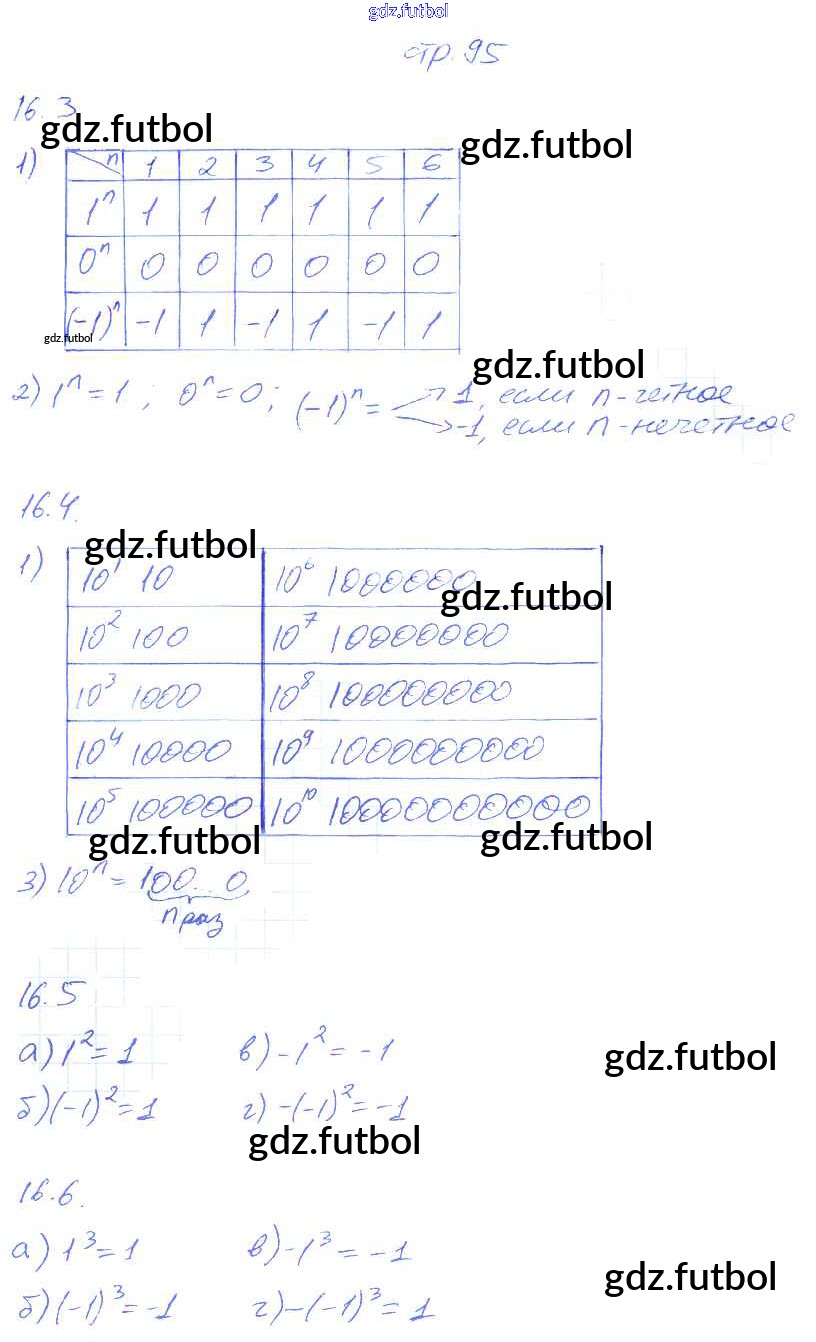 gdz.futbol
стр. 95
16.3
gdz.futbol
gdz.futbol
1) n 1 2 3 4 5 6
1ⁿ 1 1 1 1 1 1
0ⁿ 0 0 0 0 0 0
(-1)ⁿ -1 1 -1 1 -1 1
gdz.futbol
gdz.futbol
2) 1ⁿ = 1 ; 0ⁿ = 0 ; (-1)ⁿ = 1, если n - четное
-1, если n - нечетное
16.4.
gdz.futbol
1) 10¹ 10 10⁶ 1000000
gdz.futbol
10² 100 10⁷ 10000000
10³ 1000 10⁸ 100000000
10⁴ 10000 10⁹ 1000000000
10⁵ 100000 10¹⁰ 10000000000
gdz.futbol gdz.futbol
3) 10ⁿ = 100...0
n раз
16.5
а) 1² = 1 в) -1² = -1
gdz.futbol
б) (-1)² = 1 г) -(-1)² = -1
gdz.futbol
16.6.
а) 1³ = 1 в) -1³ = -1
gdz.futbol
б) (-1)³ = -1 г) -(-1)³ = 1